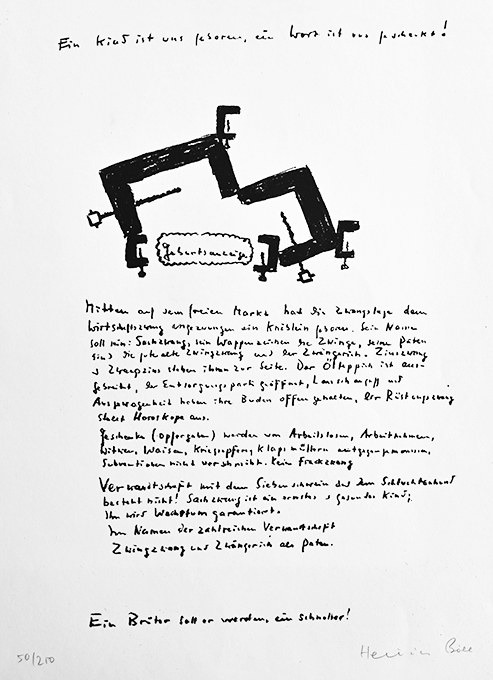 Ein Kind ist uns geboren, ein Wort ist uns geschenkt!
Geburtsanzeige
Mitten auf dem freien Markt hat die Zwangslage dem
Wirtschaftszwang ein Knäblein geboren. Sein Name
soll sein: Sachzwang, sein Wappenzeichen die Zwinge, seine Paten
sind die gute alte Zwingzwang und der Zwängerich. Zinszwang
u Zwangszins stehen ihm zur Seite. Der Ölteppich ist aus-
gebreitet, der Entsorgungspark geöffnet, Lauschangriff und
Ausgewogenheit haben ihre Buden offen gehalten, der Rüstungszwang
stellt Horoskope aus.
Geschenke (Opfergaben) werden von Arbeitslosen, Arbeitnehmern,
Witwen, Waisen, Kriegsopfern, entgegengenommen,
Subventionen nicht verschmäht. Kein Frackzwang
Verwandtschaft mit dem Siebenschwein und dem Schluchtenhund
besteht nicht! Sachzwang ist ein ernstes u gesundes Kind,
Ihm wird Wachstum garantiert.
Im Namen der zahlreichen Verwandtschaft
Zwingzwang und Zwängerich als Paten.
Ein Brüter soll er werden, ein schneller!
50/210
Heinrich Böll